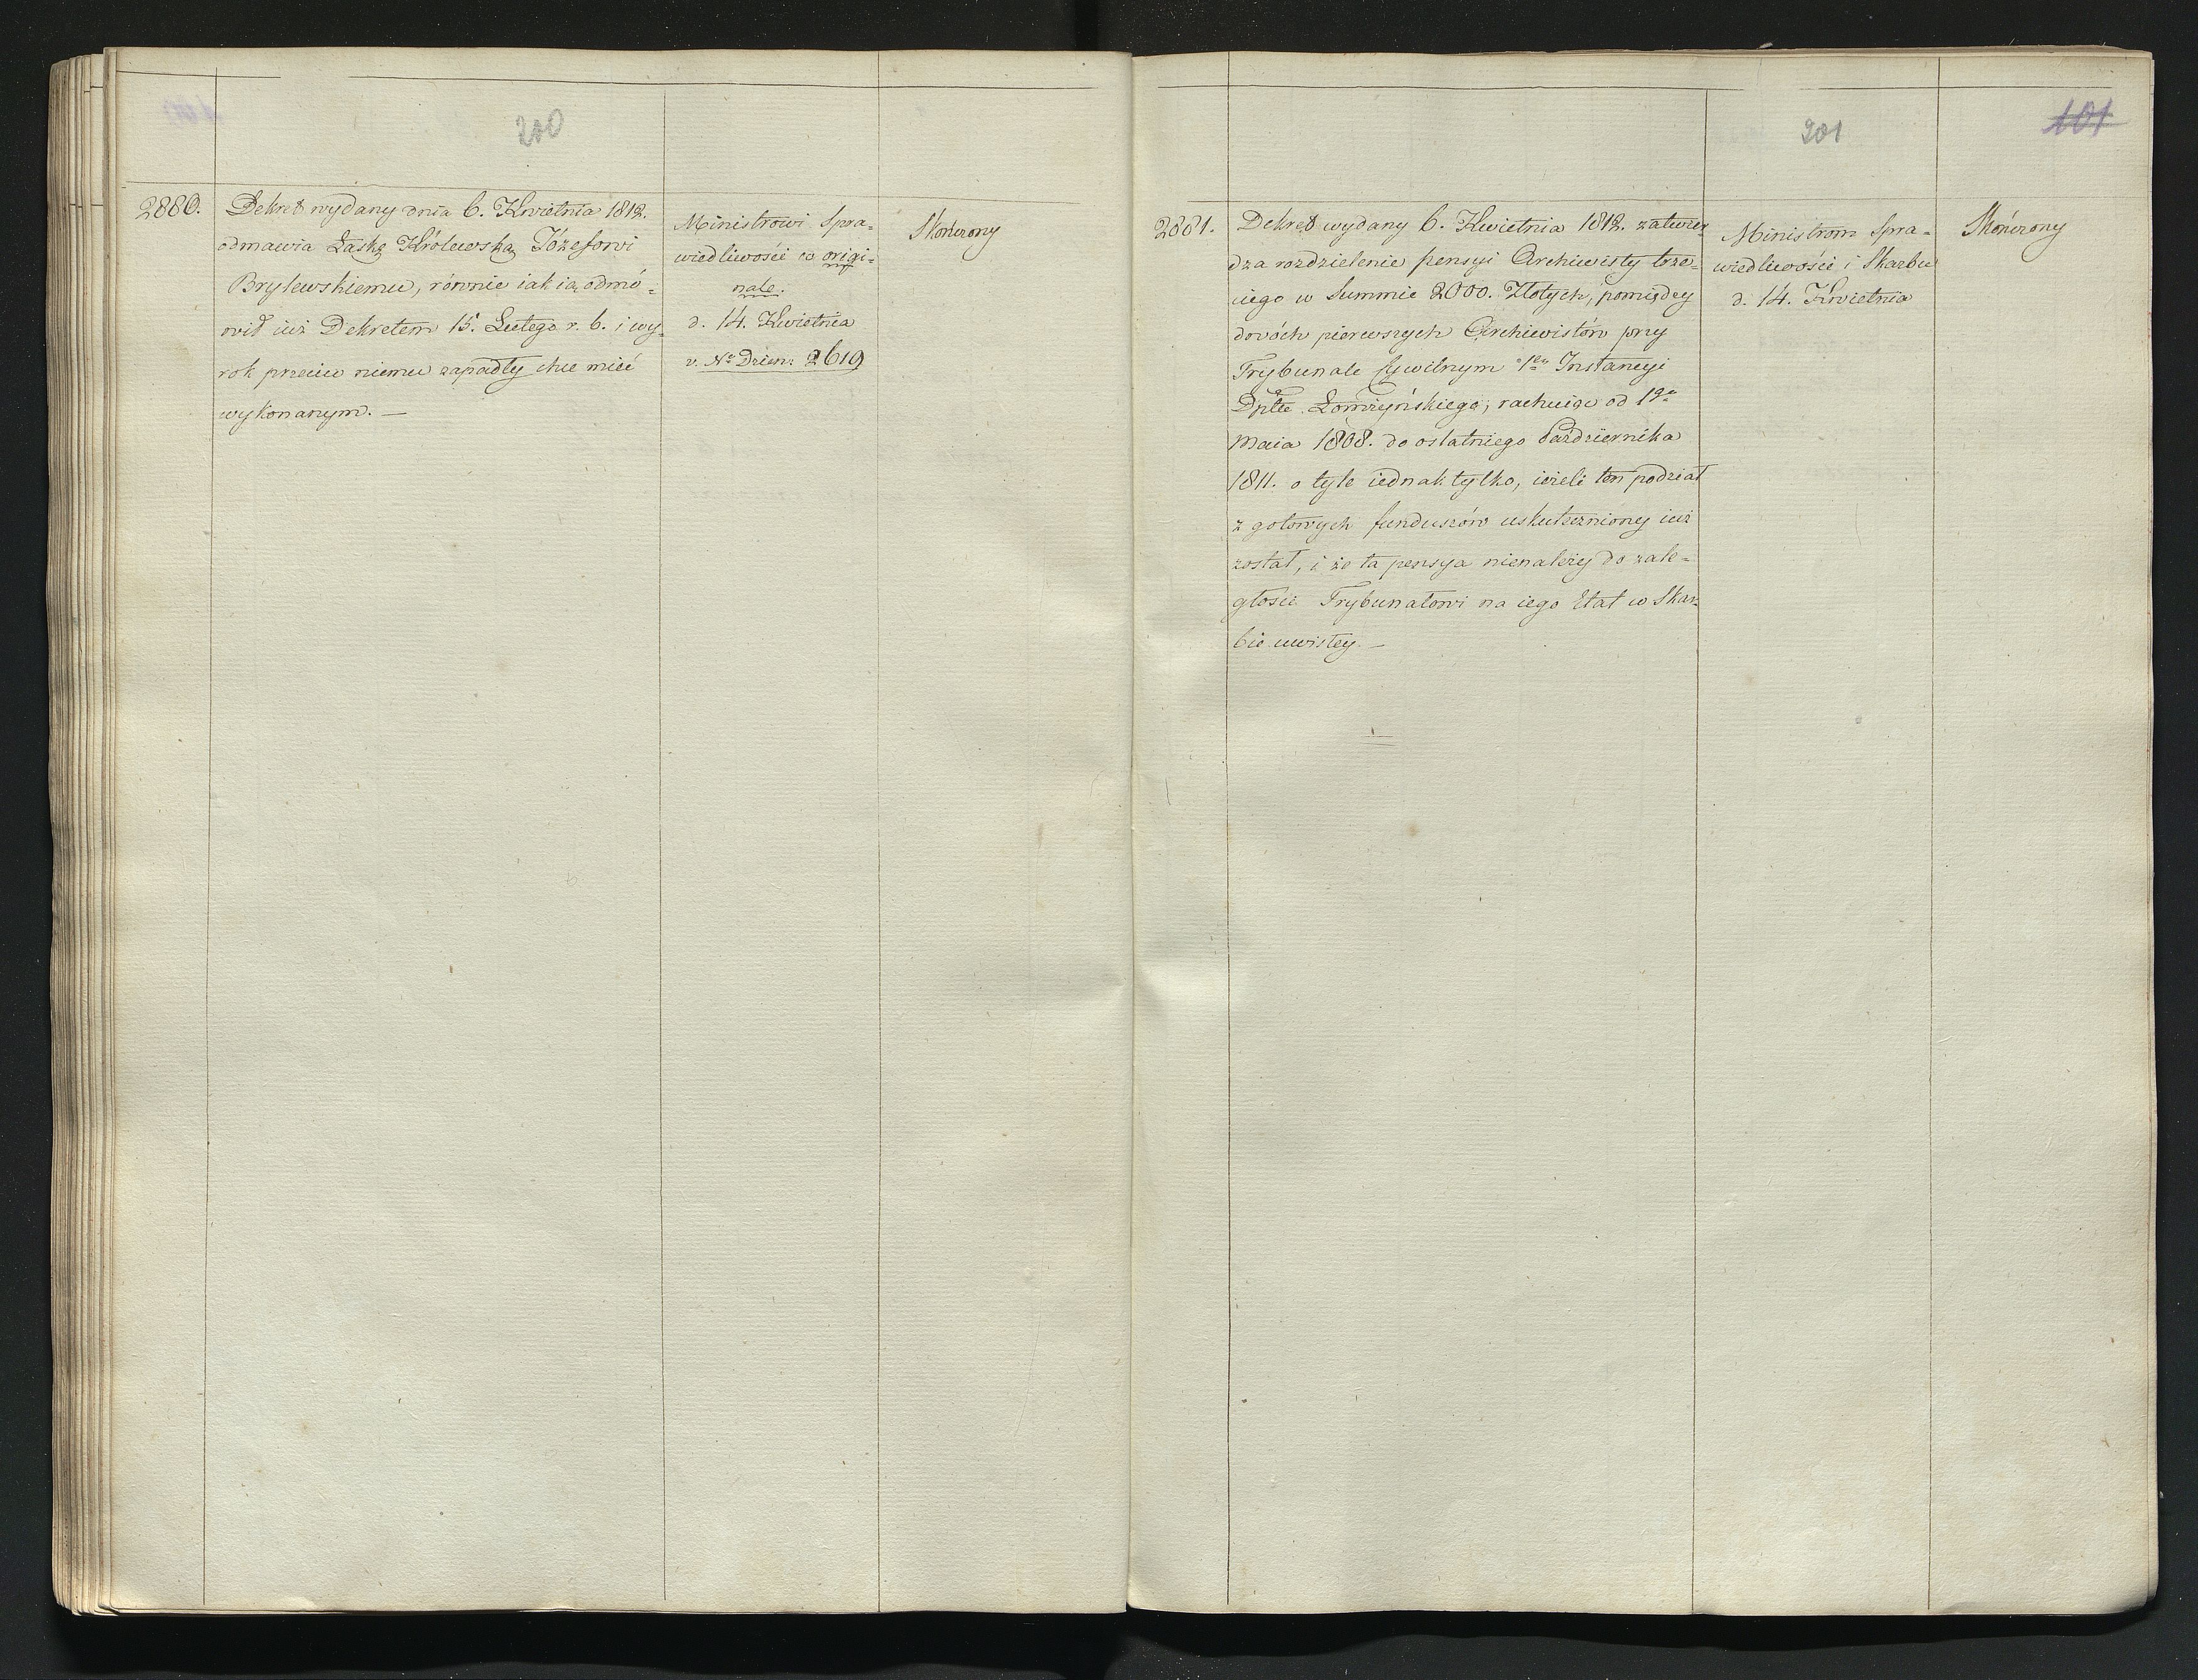 200
2880.
Dekret wydany dnia 6. Kwietnia 1812.
odmawia Łaskę Królewską Józefowi
Brylewskiemu, równie iak ią odmó=
wił iuż Dekretem 15. Lutego r. b. i wy=
rok przeciw niemu zapadły chce mieć
wykonanym. —
Ministrowi Spra=
wiedliwości w origi=
nale.
d. 14. Kwietnia
v. No Dzien: 2619
Skończony
201
101
2881.
Dekret wydany 6. Kwietnia 1812. zatwier=
dza rozdzielenie pensyi Archiwisty trze=
ciego w Summie 2000. Złotych, pomiędzy
dwóch pierwszych Archiwistów przy
Trybunale Cywilnym 1ey Instancyi
Dpttu Łomżyńskiego, rachuiąc od 1go
Maia 1808. do ostatniego Października
1811. o tyle iednak tylko, ieżeli ten podział
z gotowych funduszów uskuteczniony iuż
został, i że ta pensya nienależy do zale=
głości Trybunałowi na iego Etat w Skar=
bie uwisłey. —
Ministrom Spra=
wiedliwości i Skarbu
d. 14. Kwietnia
Skończony